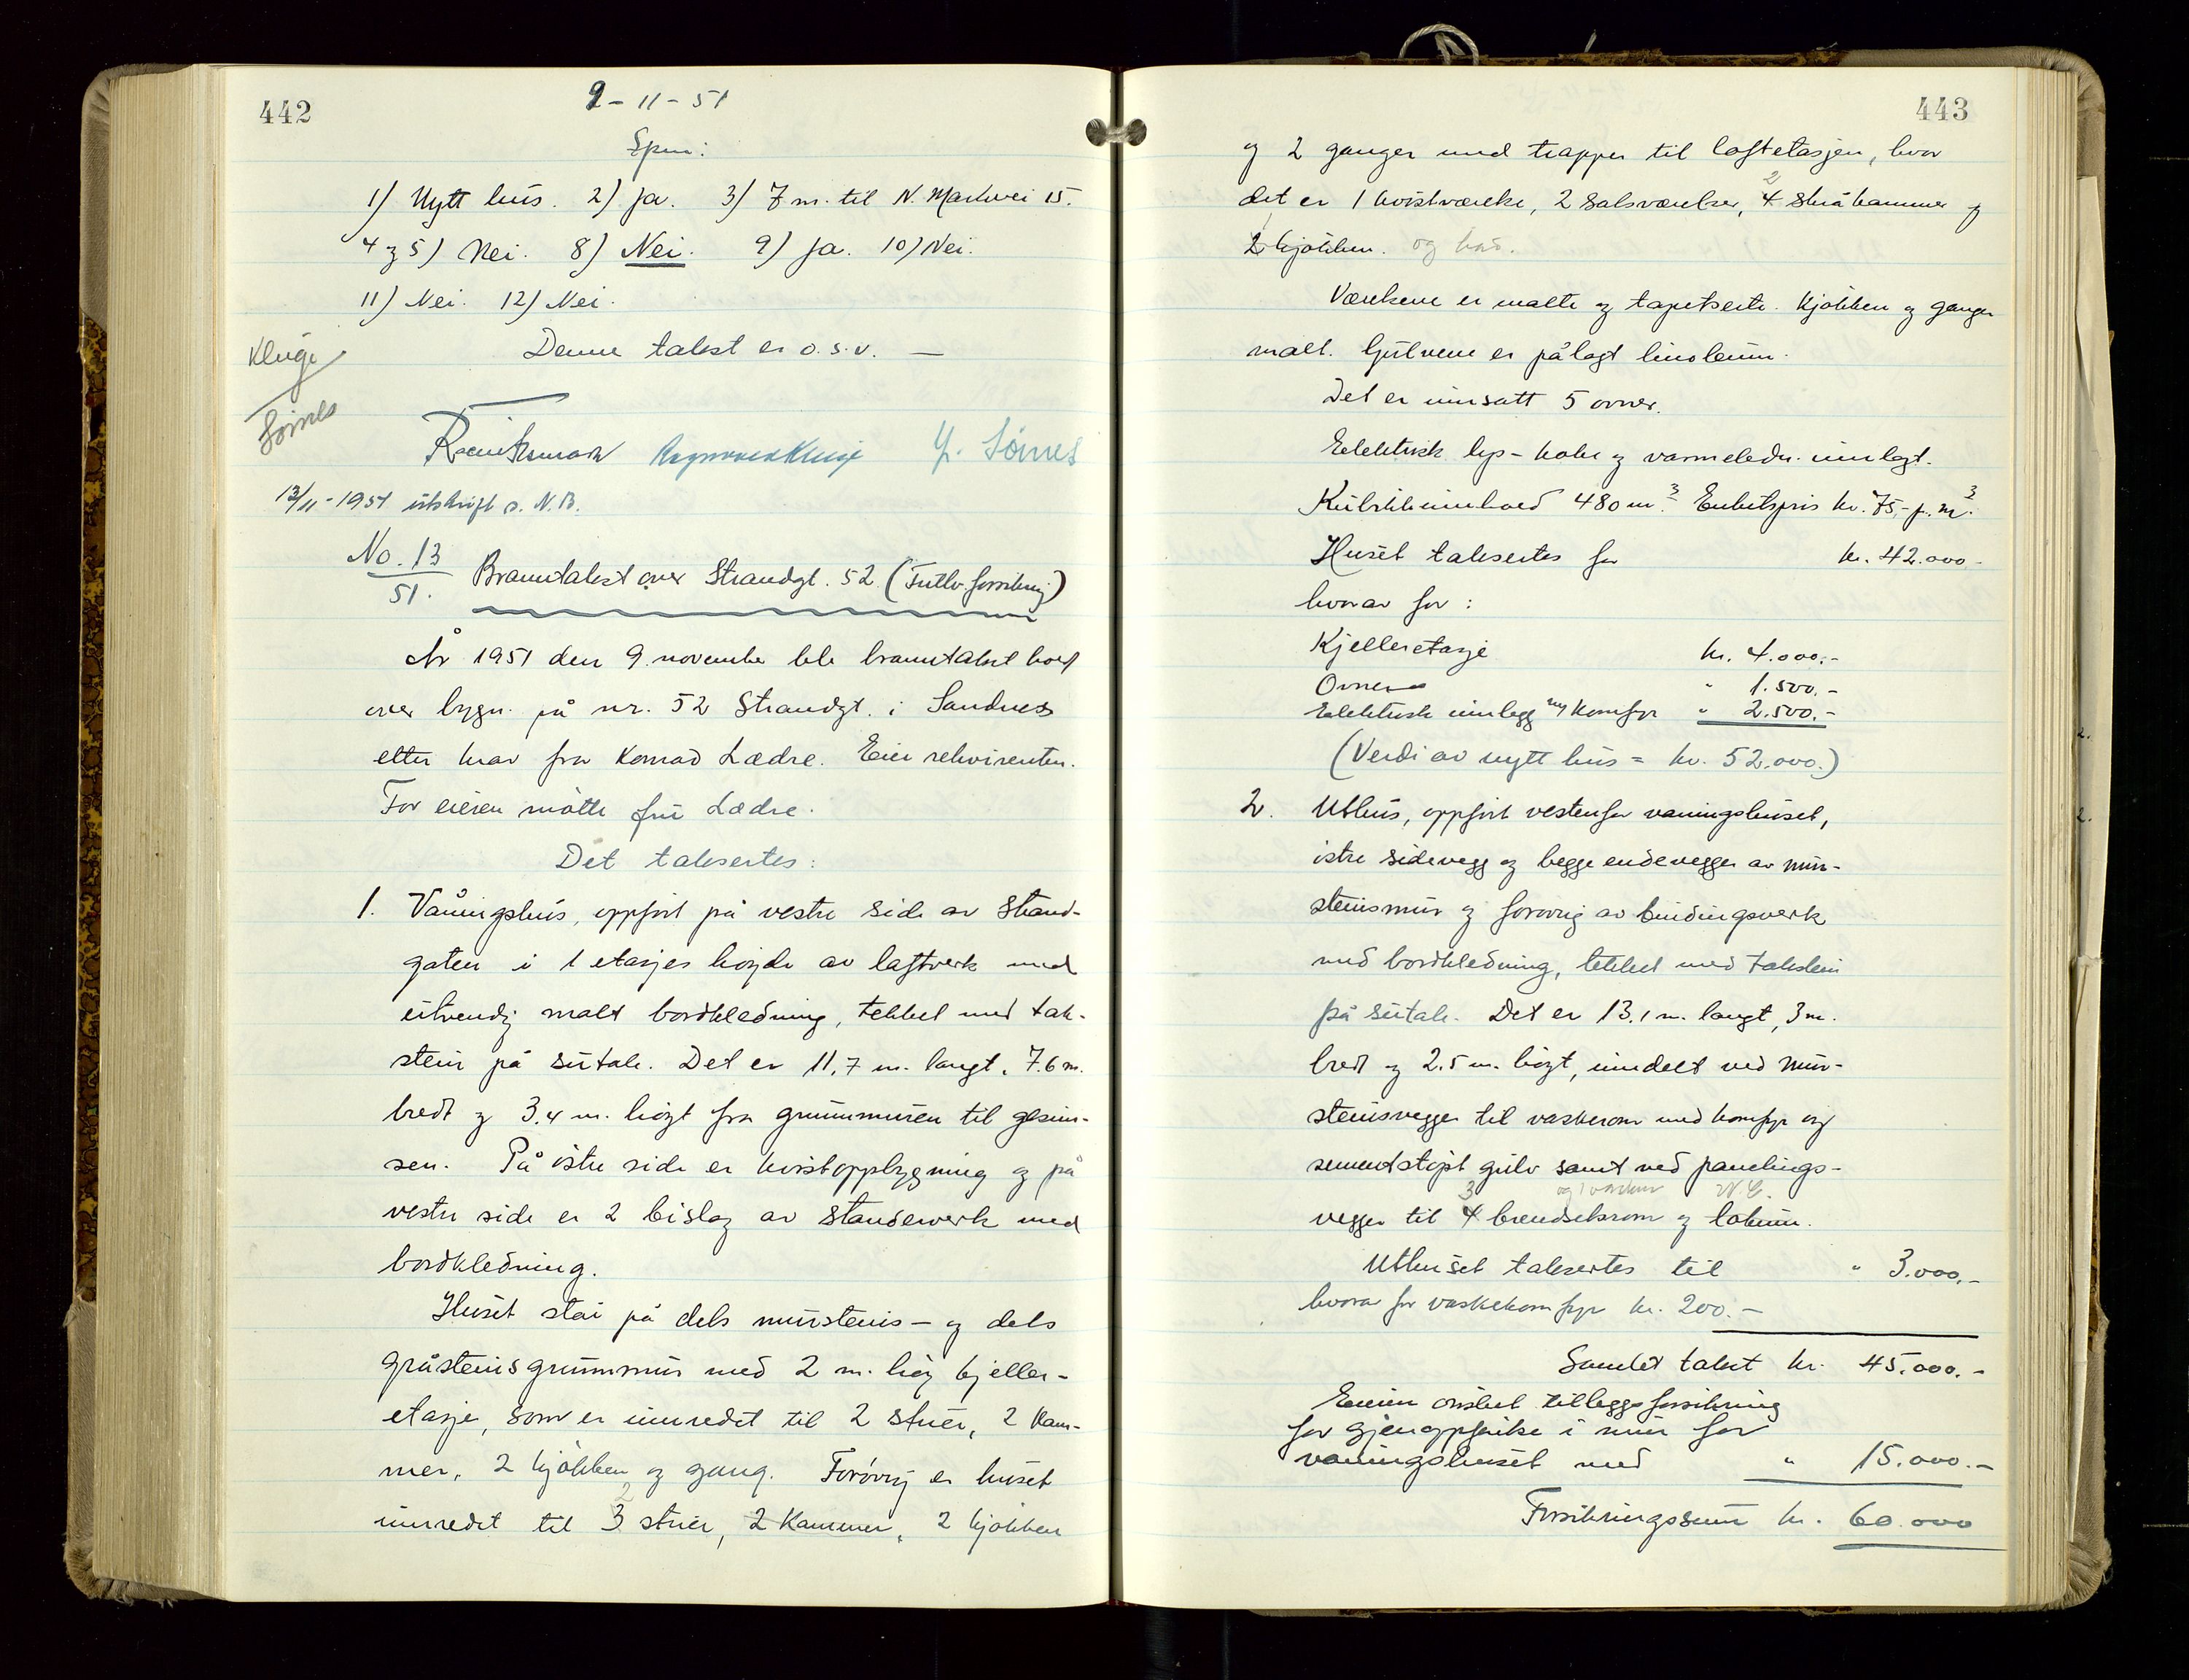 442
9-11-51
Spm:
1) Nytt hus. 2) Ja. 3) 7 m. til N. Markvei 15.
4 og 5) Nei. 8) Nei. 9) Ja. 10) Nei.
11) Nei. 12) Nei.
Denne takst er o.s.v. —
Kluge
Sømes
Y. Sømes
13/11-1951 utskrift s. N.B.
No. 13
51.
Branntakst over Strandgt. 52 (Frilv. forsikring)
År 1951 den 9. november ble branntakst hold
over bygn. på nr. 52 Strandgt. i Sandnes
etter krav fra Konrad Lædre. Eier rekvirenten.
For eieren møtte fru Lædre.
Det taksertes:
1. Våningshus, oppført på vestre side av Strand-
gaten i 1 etasjes høyde av laftverk med
utvendig malt bordkledning, tekket med tak-
stein på sutak. Det er 11,7 m. langt, 7.6 m.
bredt og 3.4 m. høgt fra grunnmuren til gesim-
sen. På østre side er kvistoppbygning og på
vestre side er 2 bislag av standerverk med
bordkledning.
Huset står på dels murstens- og dels
gråstensgrunnmur med 2 m. høg kjeller-
etasje, som er innredet til 2 stuer, 2 kam-
mer, 2 kjøkken og gang. Forøvrig er huset
2
innredet til 3 stuer, 2 kammer, 2 kjøkken
443
og 2 ganger med trapper til loftetasjen, hvor
2
det er 1 kvistværelse, 2 salsværelser, 4 skråkammer og
2 kjøkken. og bad.
Værelsene er malte og tapetserte. Kjøkken og ganger
malt. Gulvene er pålagt linoleum.
Det er innsatt 5 ovner.
Elektrisk lys- koke og varmeledn. innlagt.
Kubikkinnhold 480 m³. Enhetspris kr. 75,- p. m³.
Huset taksertes for kr. 42.000-
hvorav for:
Kjelleretasje kr. 4.000.-
Ovner " 1.500.-
Elektrisk innlegg og komfyr " 2.500.-
(Verdi av nytt hus = kr. 52.000.)
2. Uthus, oppført vestenfor våningshuset,
østre sidevegg og begge endevegger av mur-
stensmur og forøvrig av bindingsverk
med bordkledning, tekket med takstein
på sutak. Det er 13,1 m. langt, 3 m.
bredt og 2.5 m. høgt, inndelt ved mur-
stensvegger til vaskerom med komfyr og
sementstøpt gulv samt ved panelings-
3 W.C.
vegger til 4 brendselsrom og lokum.
Uthuset taksertes til " 3.000,-
hvorav for vaskekomfyr kr. 200.-
Samlet takst kr. 45.000.-
Eieren ønsket tilleggsforsikring
for gjenoppførelse i mur for
våningshuset med " 15.000.-
Forsikringssum kr. 60.000